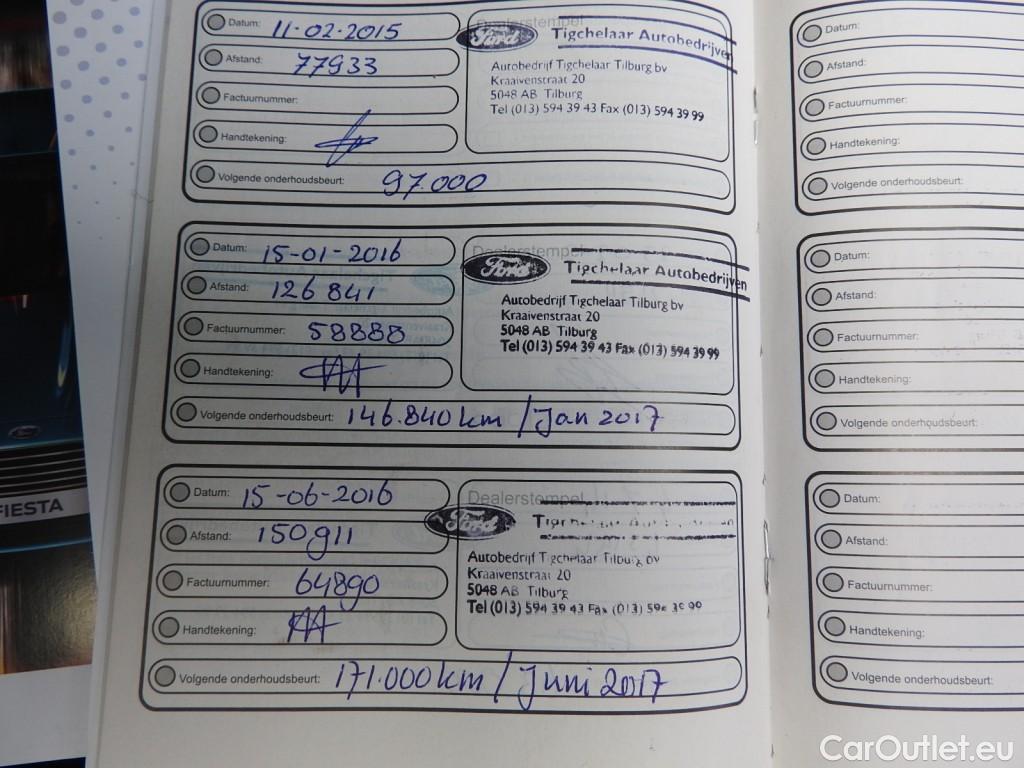 Datum: 11-02-2015
Afstand: 77933
Factuurnummer:
Handtekening:
Volgende onderhoudsbeurt: 97.000
Dealerstempel
Ford Tigchelaar Autobedrijven
Autobedrijf Tigchelaar Tilburg bv
Kraaivenstraat 20
5048 AB Tilburg
Tel (013) 594 39 43 Fax (013) 594 39 99
Datum: 15-01-2016
Afstand: 126841
Factuurnummer: 58888
Handtekening:
Volgende onderhoudsbeurt: 146.840 km / Jan 2017
Dealerstempel
Ford Tigchelaar Autobedrijven
Autobedrijf Tigchelaar Tilburg bv
Kraaivenstraat 20
5048 AB Tilburg
Tel (013) 594 39 43 Fax (013) 594 39 99
Datum: 15-06-2016
Afstand: 150911
Factuurnummer: 64890
Handtekening:
Volgende onderhoudsbeurt: 171.000 km / Juni 2017
Dealerstempel
Ford
Autobedrijf Tigchelaar Tilburg bv
Kraaivenstraat 20
5048 AB Tilburg
Tel (013) 594 39 43 Fax (013)
Datum:
Afstand:
Factuurnummer:
Handtekening:
Volgende onderhoudsbeurt:
Datum:
Afstand:
Factuurnummer:
Handtekening:
Volgende onderhoudsbeurt:
Datum:
Afstand:
Factuurnummer:
Handtekening:
Volgende onderhoudsbeurt:
FIESTA
CarOutlet.eu